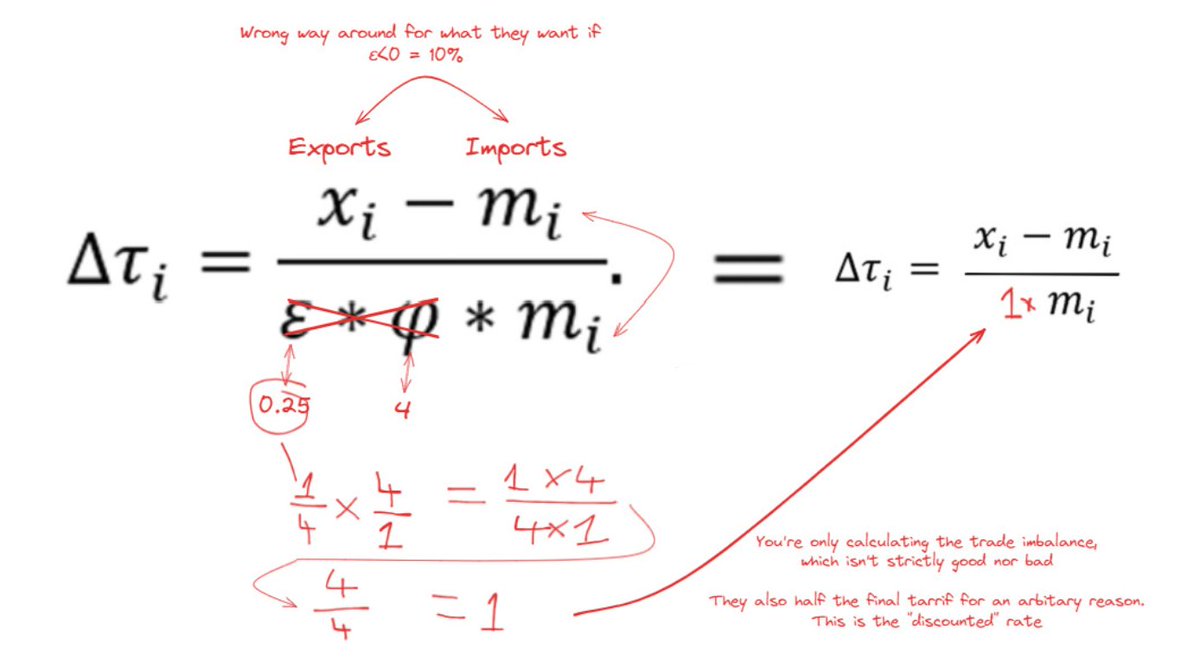 Wrong way around for what they want if
ε<0 = 10%
Exports Imports
Δτᵢ = (xᵢ − mᵢ) / (ε * φ * mᵢ). = Δτᵢ = (xᵢ − mᵢ) / (1× mᵢ)
0.25 4
1/4 × 4/1 = (1 × 4)/(4×1)
4/4 = 1
You're only calculating the trade imbalance,
which isn't strictly good nor bad
They also half the final tarrif for an arbitary reason.
This is the "discounted" rate